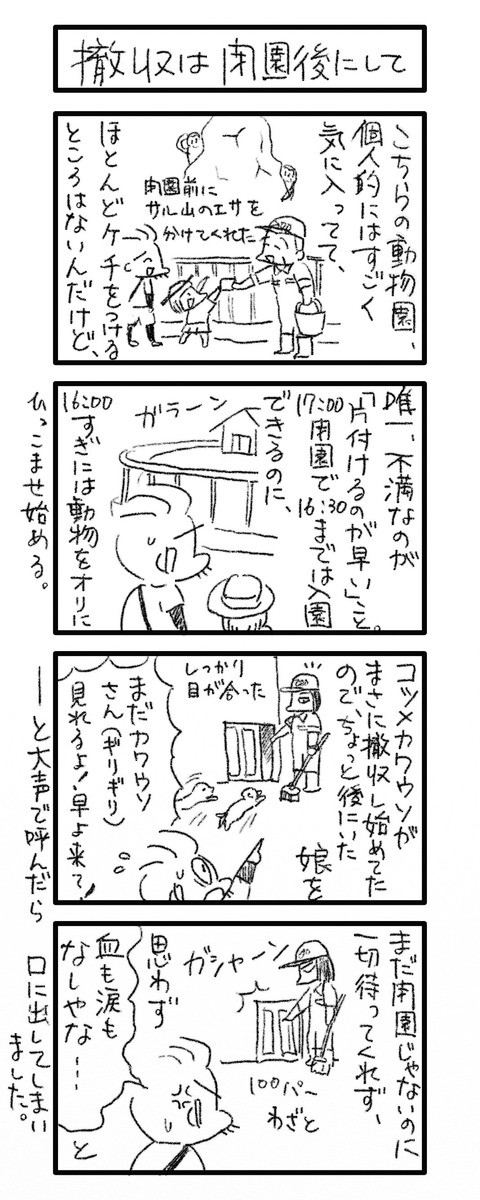 撤収は閉園後にして
こちらの動物園、
個人的にはすごく
気に入ってて、
開園前に
サル山のエサを
分けてくれた
ほとんどケチをつける
ところはないんだけど、
唯一、不満なのが
「片付けるのが早い」こと。
17:00閉園で16:30までは入園
できるのに、
ガラーン
16:00すぎには動物をオリに
ひっこませ始める。
コツメカワウソが
まさに撤収し始めてた
ので、ちょっと後にいた
娘を
しっかり
目が合った
まだカワウソ
さん(ギリギリ)
見れるよ!早よ来て!
――と大声で呼んだら
まだ閉園じゃないのに
一切待ってくれず、
ガシャーン
100パー
わざと
思わず
血も涙も
なしやな…
と
口に出してしまい
ました。